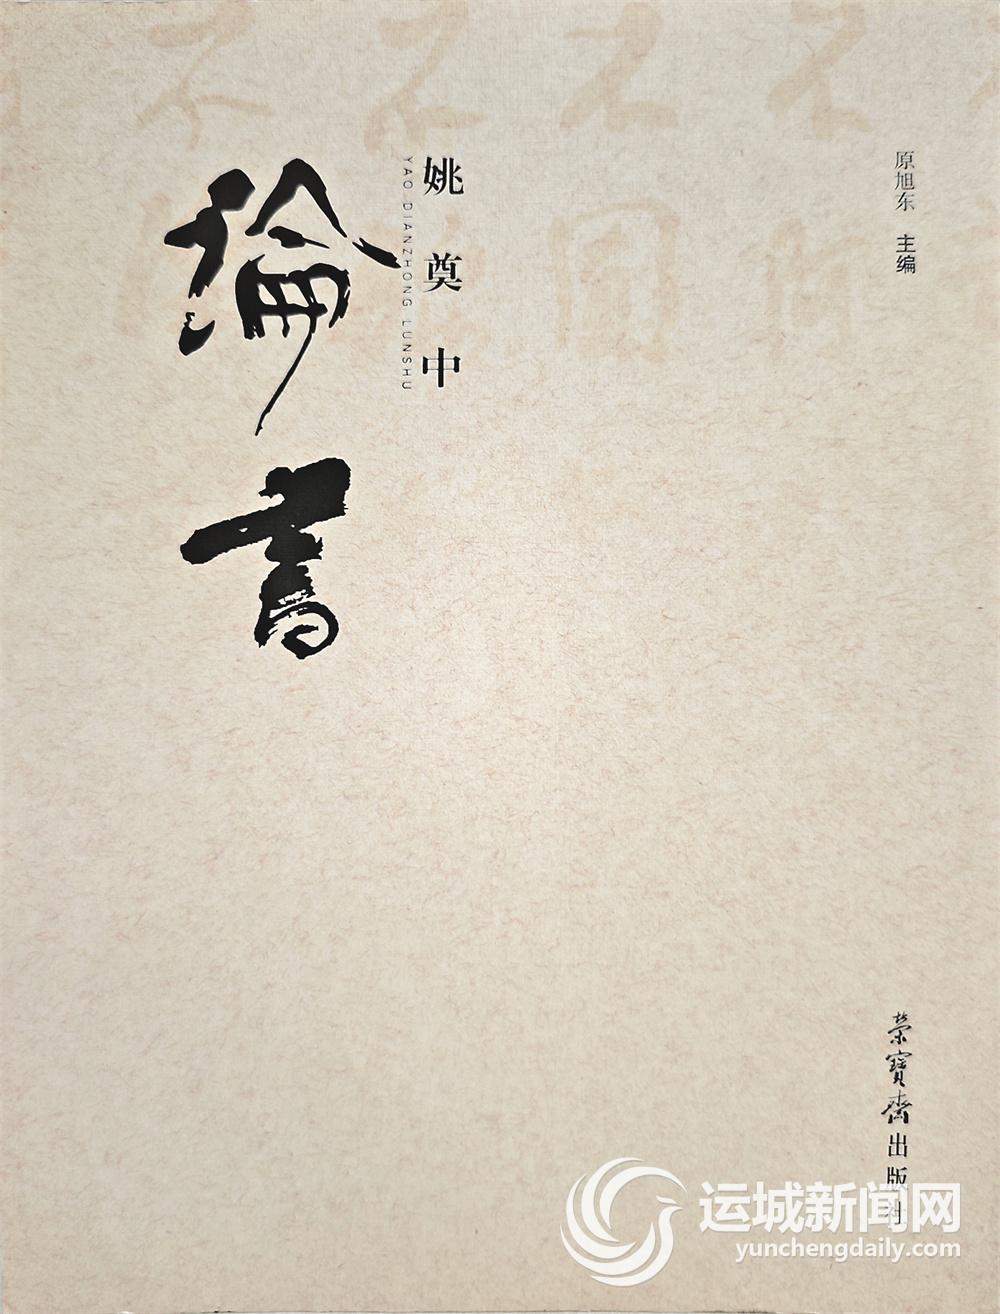 原旭东 主编
姚奠中
YAO DIANZHONG LUNSHU
論書
荣寶齋出版社
运城新闻网
yunchengdaily.com